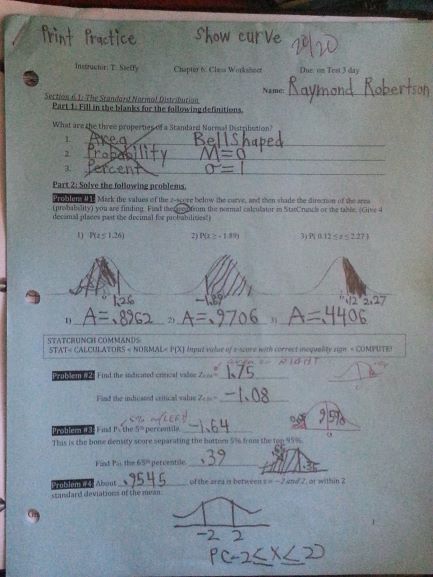 Print Practice Show curve 20/20
Instructor: T. Steffy Chapter 6: Class Worksheet Due: on Test 3 day
Name: Raymond Robertson
Section 6.1: The Standard Normal Distribution
Part 1: Fill in the blanks for the following definitions.
What are the three properties of a Standard Normal Distribution?
1. Area Bell Shaped
2. Probability M=0
3. Percent σ=1
Part 2: Solve the following problems.
Problem #1: Mark the values of the z-score below the curve, and then shade the direction of the area
(probability) you are finding. Find the area from the normal calculator in StatCrunch or the table. (Give 4
decimal places past the decimal for probabilities!)
1) P(z ≤ 1.26) 2) P(z ≥ -1.89) 3) P( 0.12 ≤ z ≤ 2.27)
0 1.26 -1.89 .12 2.27
1) A=.8962 2) A=.9706 3) A=.4406
STATCRUNCH COMMANDS:
STAT< CALCULATORS < NORMAL< P(X) Input value of z-score with correct inequality sign < COMPUTE!
area on RIGHT
Problem #2: Find the indicated critical value 1.75
Find the indicated critical value -1.08
Problem #3: Find the 5th percentile. -1.64 95%
This is the bone density score separating the bottom 5% from the top 95%.
Find the 65th percentile. .39
Problem #4: About .9545 of the area is between z = -2 and 2, or within 2
standard deviations of the mean.
-2 2
P(-2≤X≤2)
1